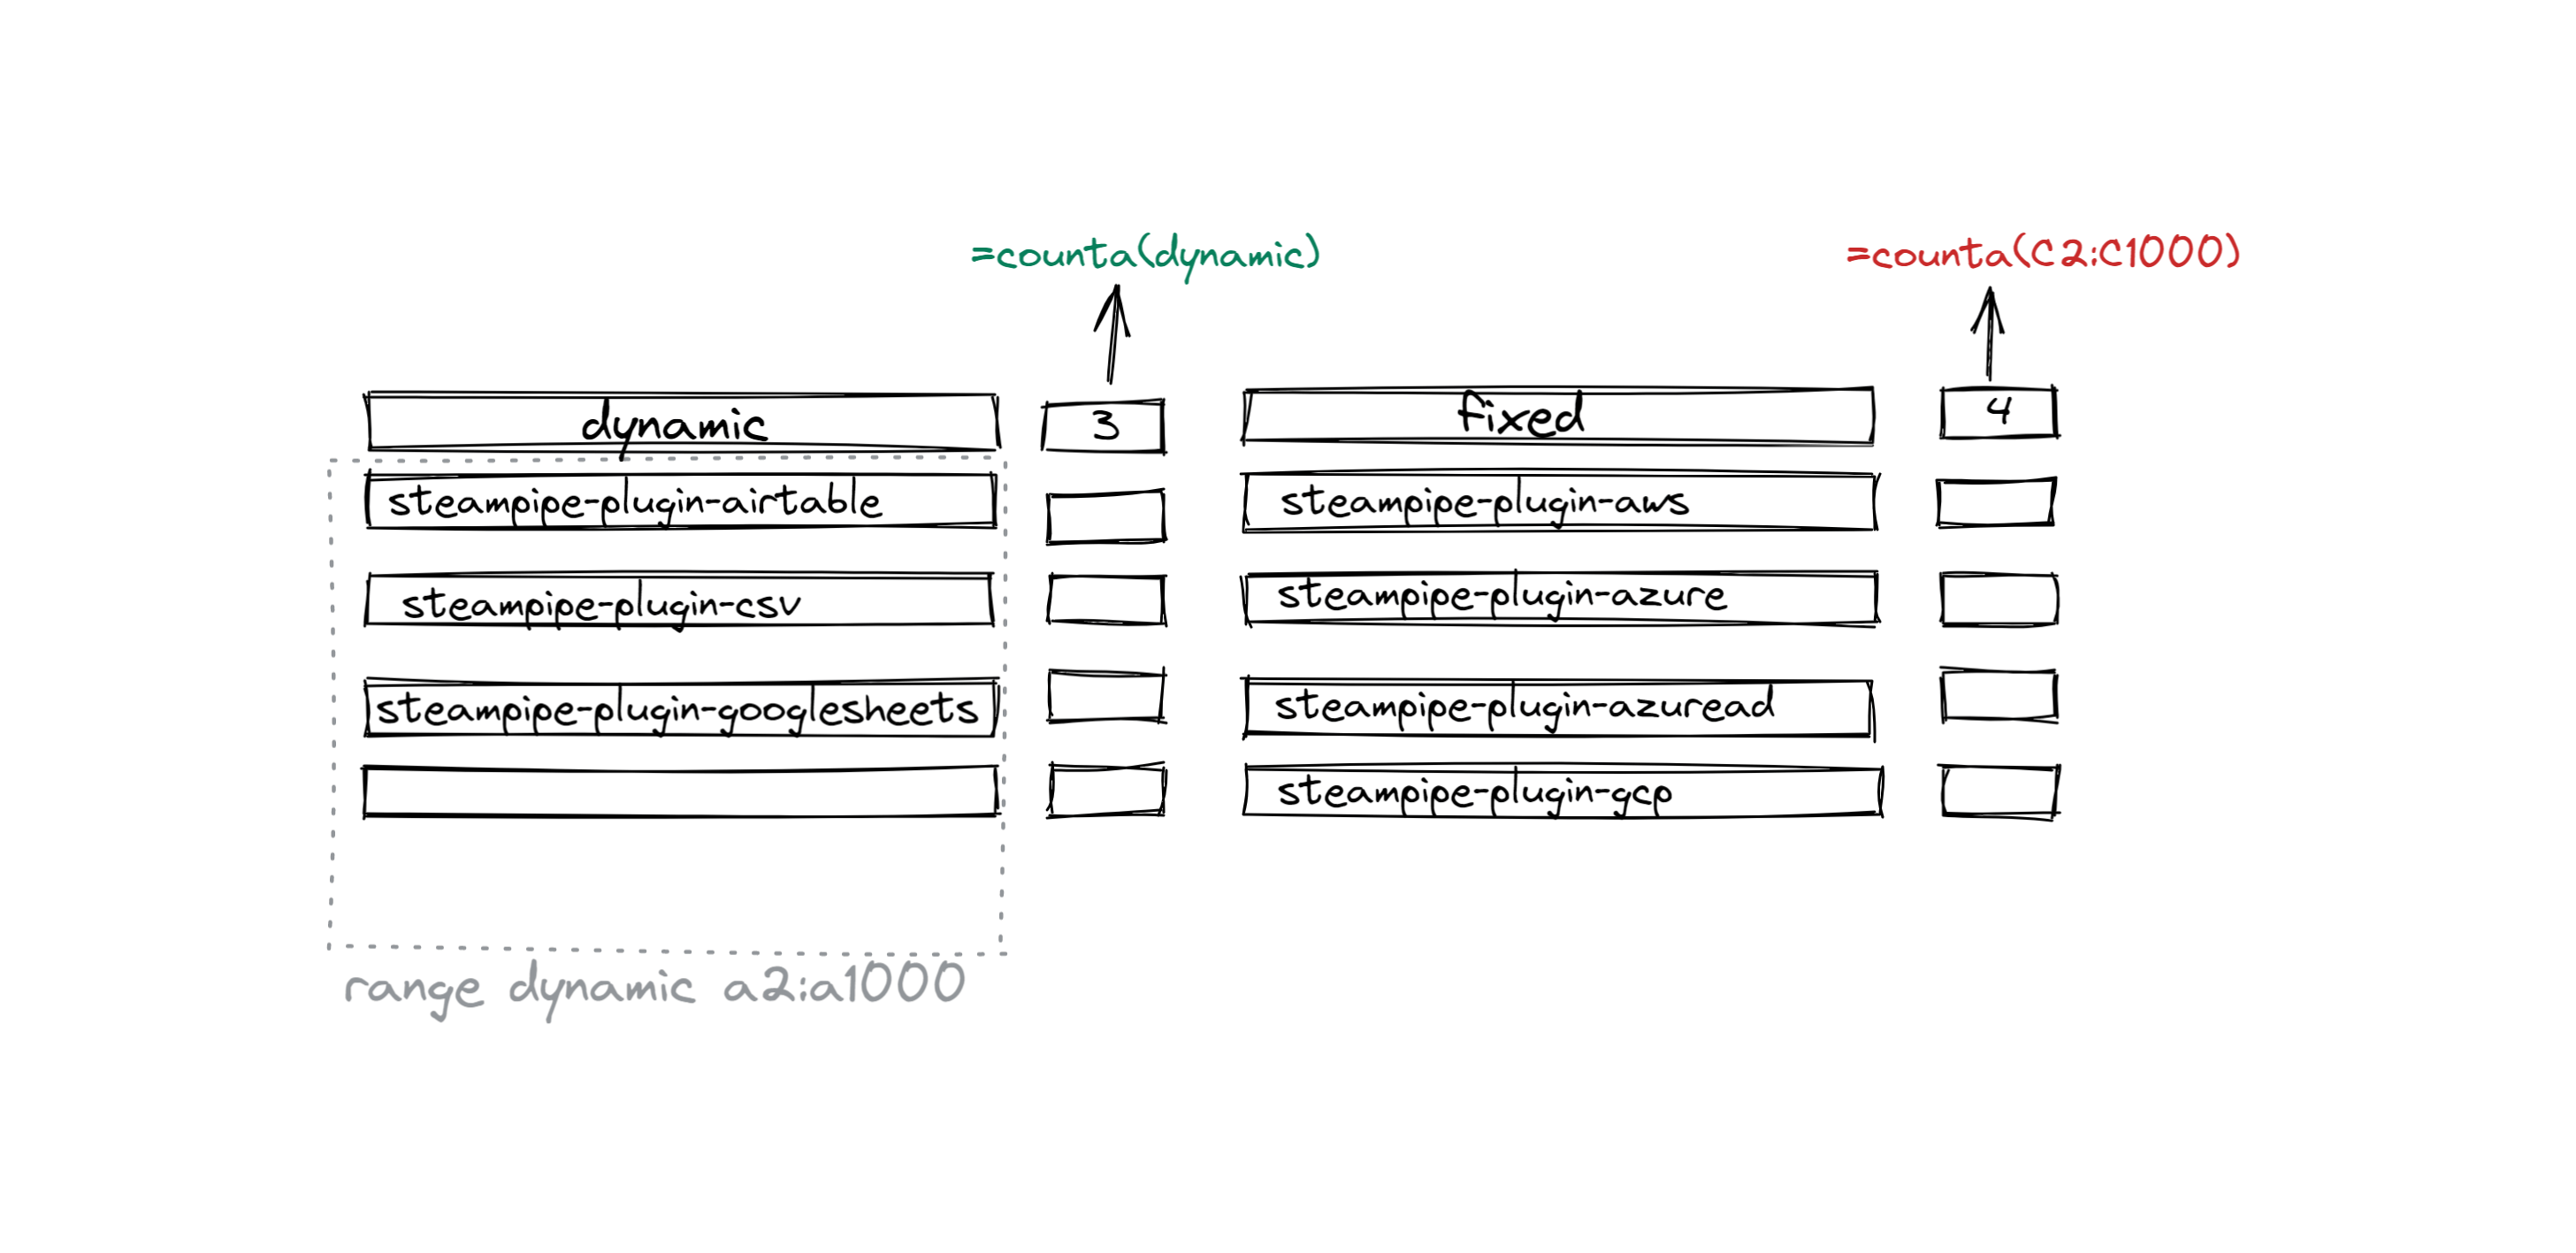 =counta(dynamic)
=counta(C2:C1000)
dynamic
3
fixed
4
steampipe-plugin-airtable
steampipe-plugin-aws
steampipe-plugin-csv
steampipe-plugin-azure
steampipe-plugin-googlesheets
steampipe-plugin-azuread
steampipe-plugin-gcp
range dynamic a2:a1000